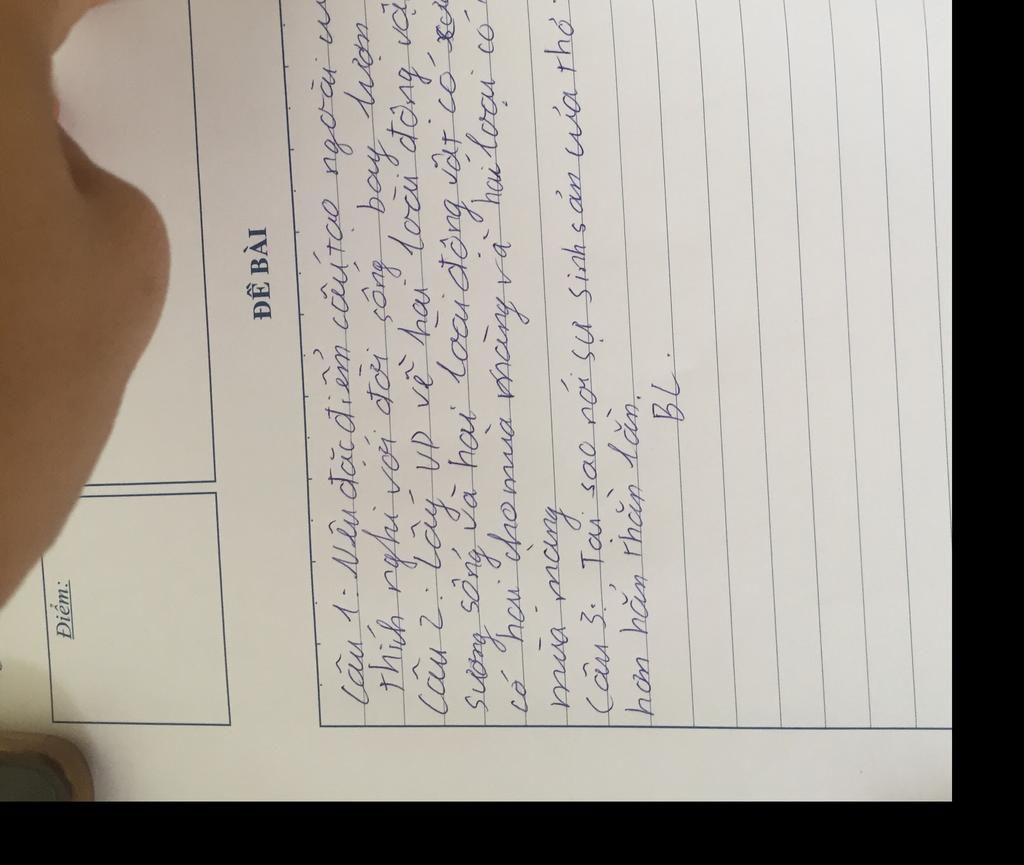 Điểm:
ĐỀ BÀI
Câu 1. Nêu đặc điểm cấu tạo ngoài
thích nghi với đời sống bay lượn
Câu 2: Lấy VD về hai loài động vật
xương sống và hai loài động vật có
có hại cho mùa màng và hai loài có
mùa màng
Câu 3. Tại sao nói sự sinh sản của thỏ
hơn hẳn thằn lằn.
BL.